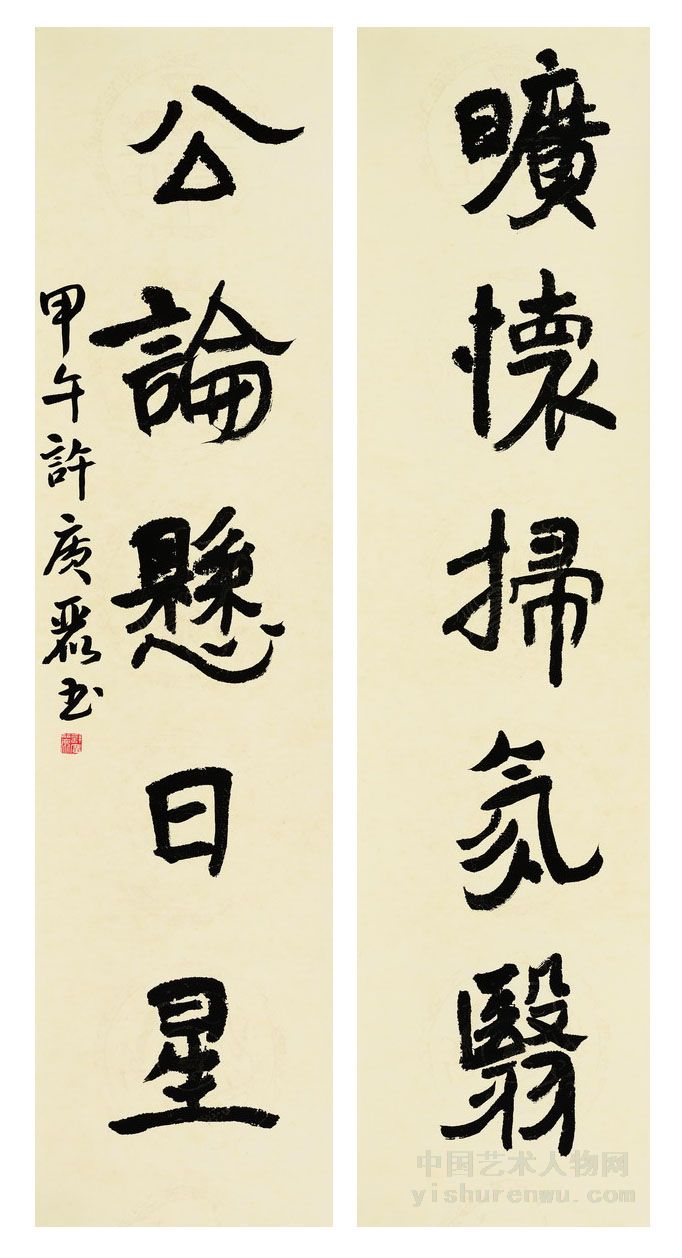 曠懷掃氛翳
公論懸日星
甲午許廣
书
中国艺术人物网
yishurenwu.com